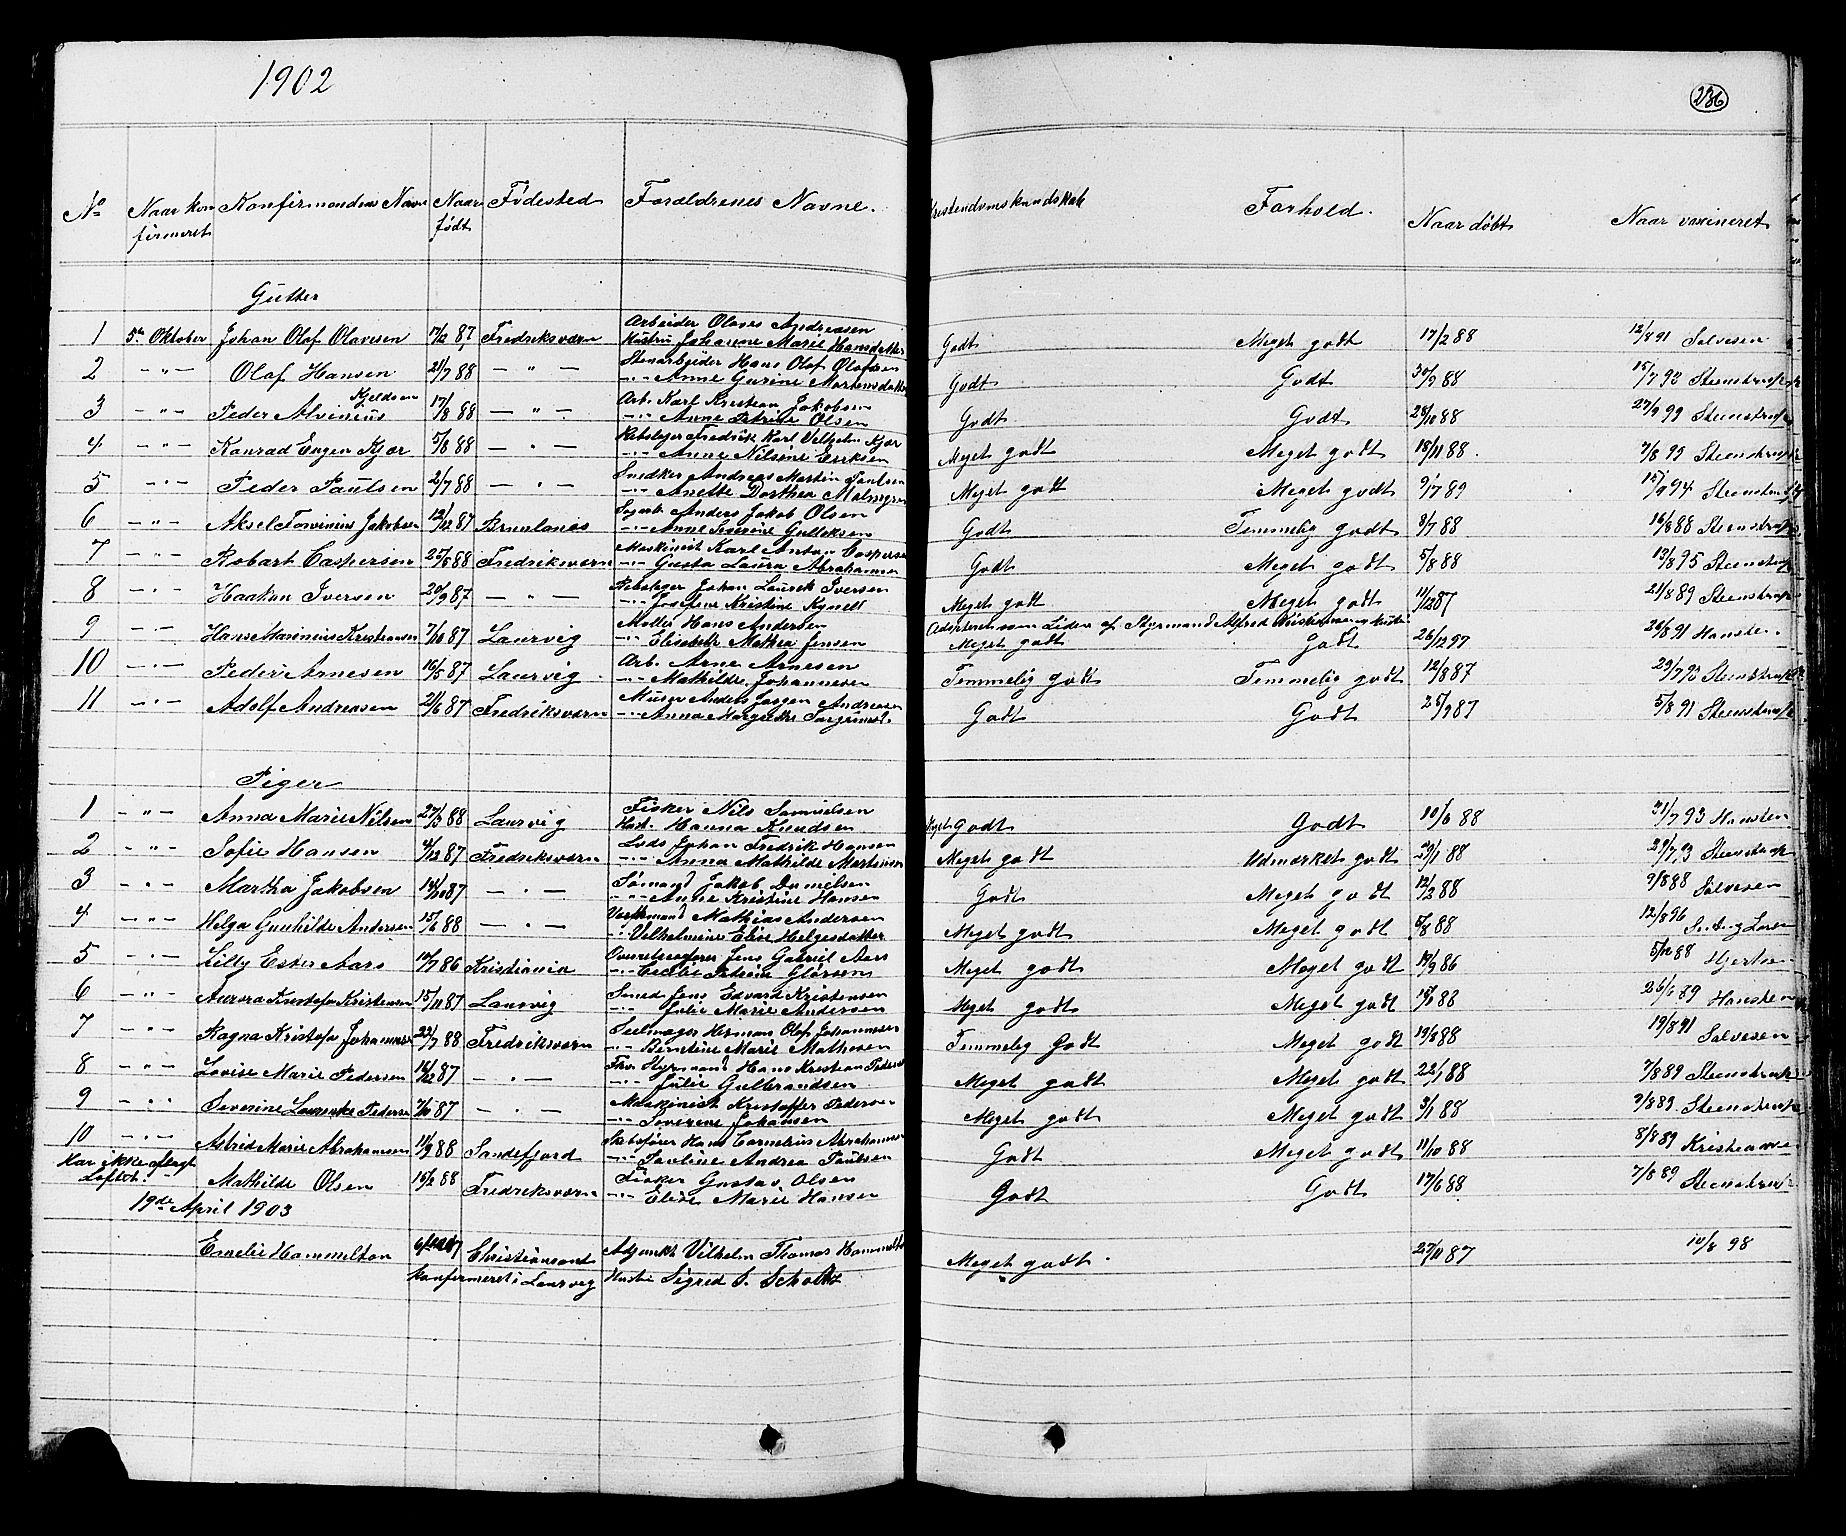 1902
236
No Naar konfirmeret Konfirmandens Navn Naar født Fødested Forældrenes Navne. Kristendomskundskab Forhold. Naar døbt Naar vaxineret
Gutter
1 5te Oktober Johan Olaf Olavesen 17/12 87 Fredriksværn Arbeider Olaves Andreasen Godt. Meget godt 17/2 88 12/8 91 Solvesen
Hustru Johanne Marie Hansdatter
2 -"- Olaf Hansen 21/7 88 -"- Stenarbeider Hans Olaf Olafsen Godt Godt 30/9 88 15/7 92 Steenstrup
-"- Anne Gurine Mortensdatter
3 -"- Peder Alvinius Kjeldsen 17/8 88 -"- Arb. Karl Kristian Jakobsen Godt Godt 28/10 88 27/9 99 Steenstrup
-"- Anne Petrine Olsen
4 -"- Konrad Eugen Kjær 5/8 88 -"- Rebslager Fredrik Karl Vilhelm Kjær Meget godt Meget godt 18/11 88. 7/8 99 Steenstrup
-"- Anne Nilsine Eriksen
5 -"- Peder Paulsen 2/7 88 -"- Snedker Andreas Martin Paulsen Meget godt Meget godt 9/7 89 12/9 94 Steenstrup
-"- Anette Dorthea Malmgren
6 -"- Aksel Torvinius Jakobsen 12/12 87 Brunlanes Anders Jakob Olsen Godt Temmelig godt 8/7 88 16/8 88 Steenstrup
-"- Anne Severine Gulliksen
7 -"- Robart Caspersen 25/5 88 Fredriksværn Maskinist Karl Anton Caspersen Godt Meget godt 5/8 88 13/8 95 Steenstrup
-"- Gusta Laura Abrahamsen
8 -"- Haakon Iversen 20/9 87 -"- Rebslager Johan Laurik Iversen Meget godt Meget godt 11/12 87 21/8 89 Steenstrup
-"- Josefine Kristine Kynell
9 -"- Hans Marinius Kristiansen 7/10 87 Laurvig Møller Hans Andersen Adopteret som Liden af Styrmand Alfred Kristiansen og Hustru
-"- Elisabeth Mathea Jensen Meget godt Godt 26/12 97 26/8 91 Hansten.
10 -"- Peder Arnesen 16/5 87 Laurvig Arb. Arne Arnesen Temmelig godt Temmelig godt 12/8 87 29/7 92 Steenstrup
-"- Mathilde Johannesen
11 -"- Adolf Andreasen 21/6 87 Fredriksværn Murer Anders Jørgen Andreasen Godt Godt 25/9 87 5/8 91 Steenstrup
-"- Anna Margrethe
Piger
1 -"- Anna Marie Nilsen 27/3 88 Laurvig Fisker Nils Samuelsen Meget Godt Godt 10/6 88 31/7 93 Hansten
Hust. Hanna Knudsen
2 -"- Sofie Hansen 4/12 87 Fredriksværn Lods Johan Fredrik Hansen Meget godt Udmærket godt 29/1 88 29/7 93 Steenstrup
-"- Anna Mathilde Martinsen
3 -"- Martha Jakobsen 14/10 87 -"- Sømand Jakob Danielsen Godt Meget godt 12/2 88 9/8 88 Solvesen
-"- Anne Kristine Hansen
4 -"- Helga Gunhilde Andersen 15/6 88 -"- Mathias Andersen Meget godt Meget godt 5/8 88 12/8 96
-"- Vilhelmine Elise Helgesdatter
5 -"- Lilly Ester Aars 10/7 86 Kristiania Jens Gabriel Aars Meget godt Meget godt 17/9 86 5/10 88
-"- Cecilie Petrine Glørsen
6 -"- Aurora Kristofa Kristensen 15/11 87 Laurvig Smed Jens Edvard Kristensen Meget godt Meget godt 15/1 88 26/6 89 Hansten
-"- Julie Marie Andersen
7 -"- Ragna Kristofa Johannesen 22/7 88 Fredriksværn Seilmager Herman Olaf Johannesen Temmelig Godt Meget godt 19/8 88 19/8 91 Solvesen
-"- Berntine Marie Mathesen
8 -"- Lovise Marie Pedersen 14/12 87 -"- Styrmand Hans Kristian Pedersen Meget godt Meget godt 22/1 88 7/8 89 Steenstrup
-"- Julie Gulbrandsen
9 -"- Severine Laurenke Pedersen 7/10 87 -"- Maskinist Kristoffer Pedersen Meget godt Meget godt 9/1 88 9/8 89. Steenstrup
-"- Severine Johansen
10 -"- Astrid Marie Abrahamsen 14/9 88 Sandefjord Skibsfører Hans Cornelius Abrahamsen Godt Meget godt 11/10 88 8/8 89 Kristiansen
-"- Pauline Andrea Paulsen
Har ikke aflagt Løftet. Mathilde Olsen 16/2 88 Fredriksværn Fisker Gustav Olsen Godt Godt 17/6 88 7/8 89 Steenstrup
-"- Elise Marie Hansen
19de April 1903
Emelie Hammelton Christiansand Adjunkt Vilhelm Thomas Hammelton Meget godt. 27/11 87 10/8 98
Konfirmeret i Laurvig Hustru Sigrid S. Scholtz